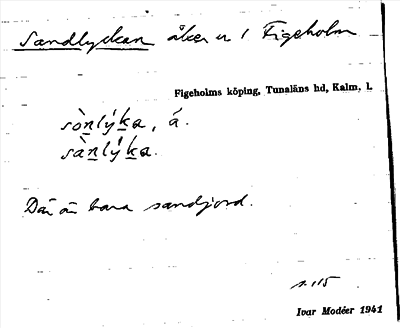 Sandlyckan åker n / Figeholm
Figeholms köping, Tunaläns hd, Kalm. l.
sònlýka, á.
sànlýka.
Där är bara sandjord.
s. 115
Ivar Modéer 1941